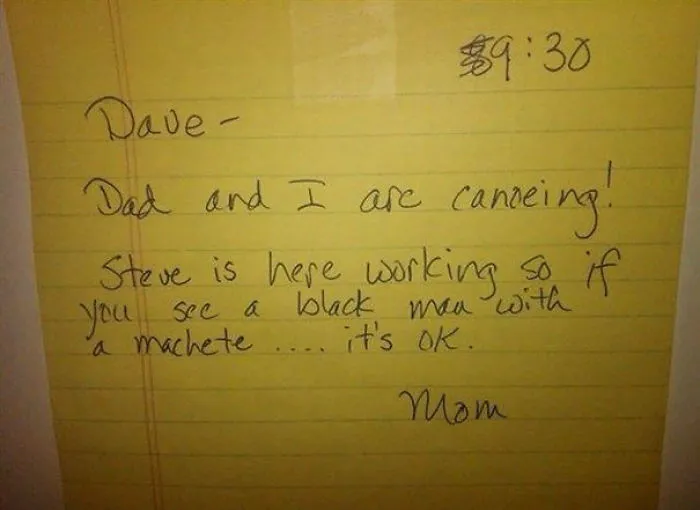 9:30
Dave -
Dad and I are canoeing!
Steve is here working so if
you see a black man with
a machete .... it's OK.
Mom